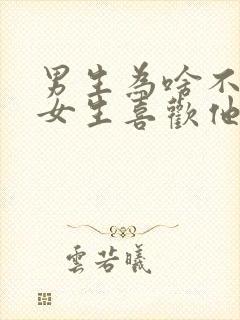 男生為啥不
女生喜歡他
雲若曦